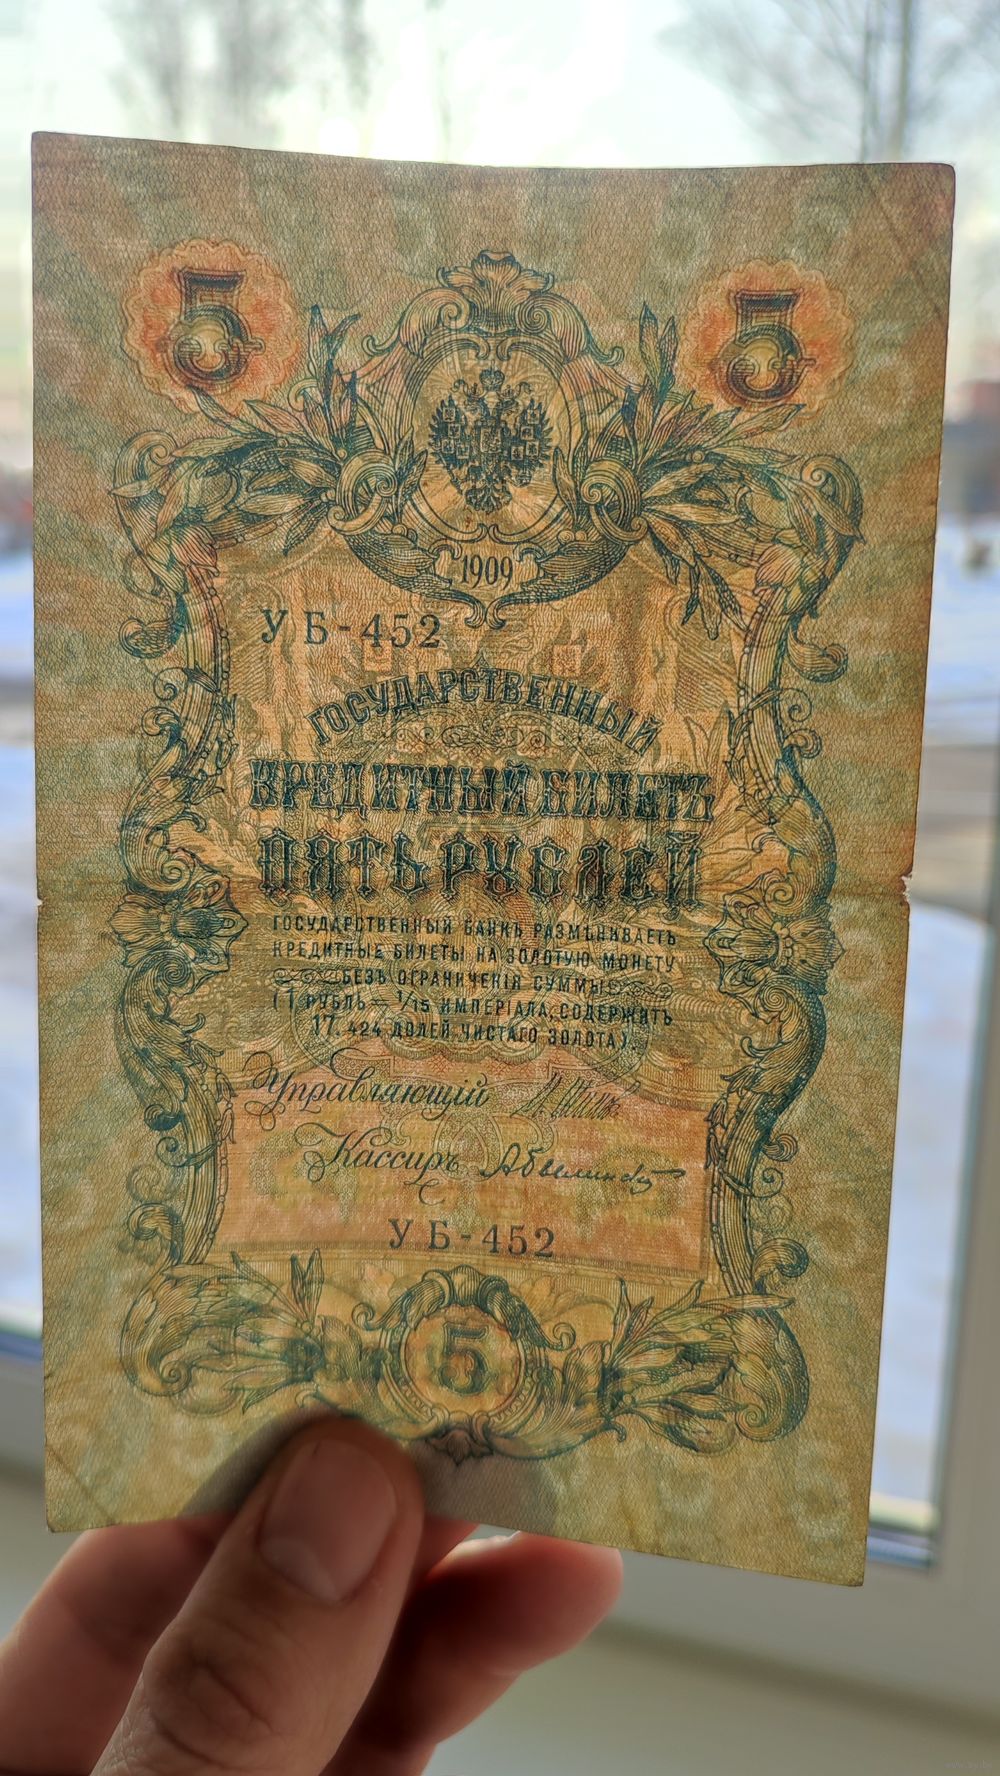 5 5
1909
УБ-452
ГОСУДАРСТВЕННЫЙ
КРЕДИТНЫЙ БИЛЕТЪ
ПЯТЬ РУБЛЕЙ
ГОСУДАРСТВЕННЫЙ БАНКЪ РАЗМѢНИВАЕТЪ
КРЕДИТНЫЕ БИЛЕТЫ НА ЗОЛОТУЮ МОНЕТУ
БЕЗЪ ОГРАНИЧЕНІЯ СУММЫ
(1 РУБЛЬ = 1/15 ИМПЕРІАЛА, СОДЕРЖИТЪ
17.424 ДОЛЕЙ ЧИСТАГО ЗОЛОТА).
Управляющій
Кассиръ
УБ-452
5